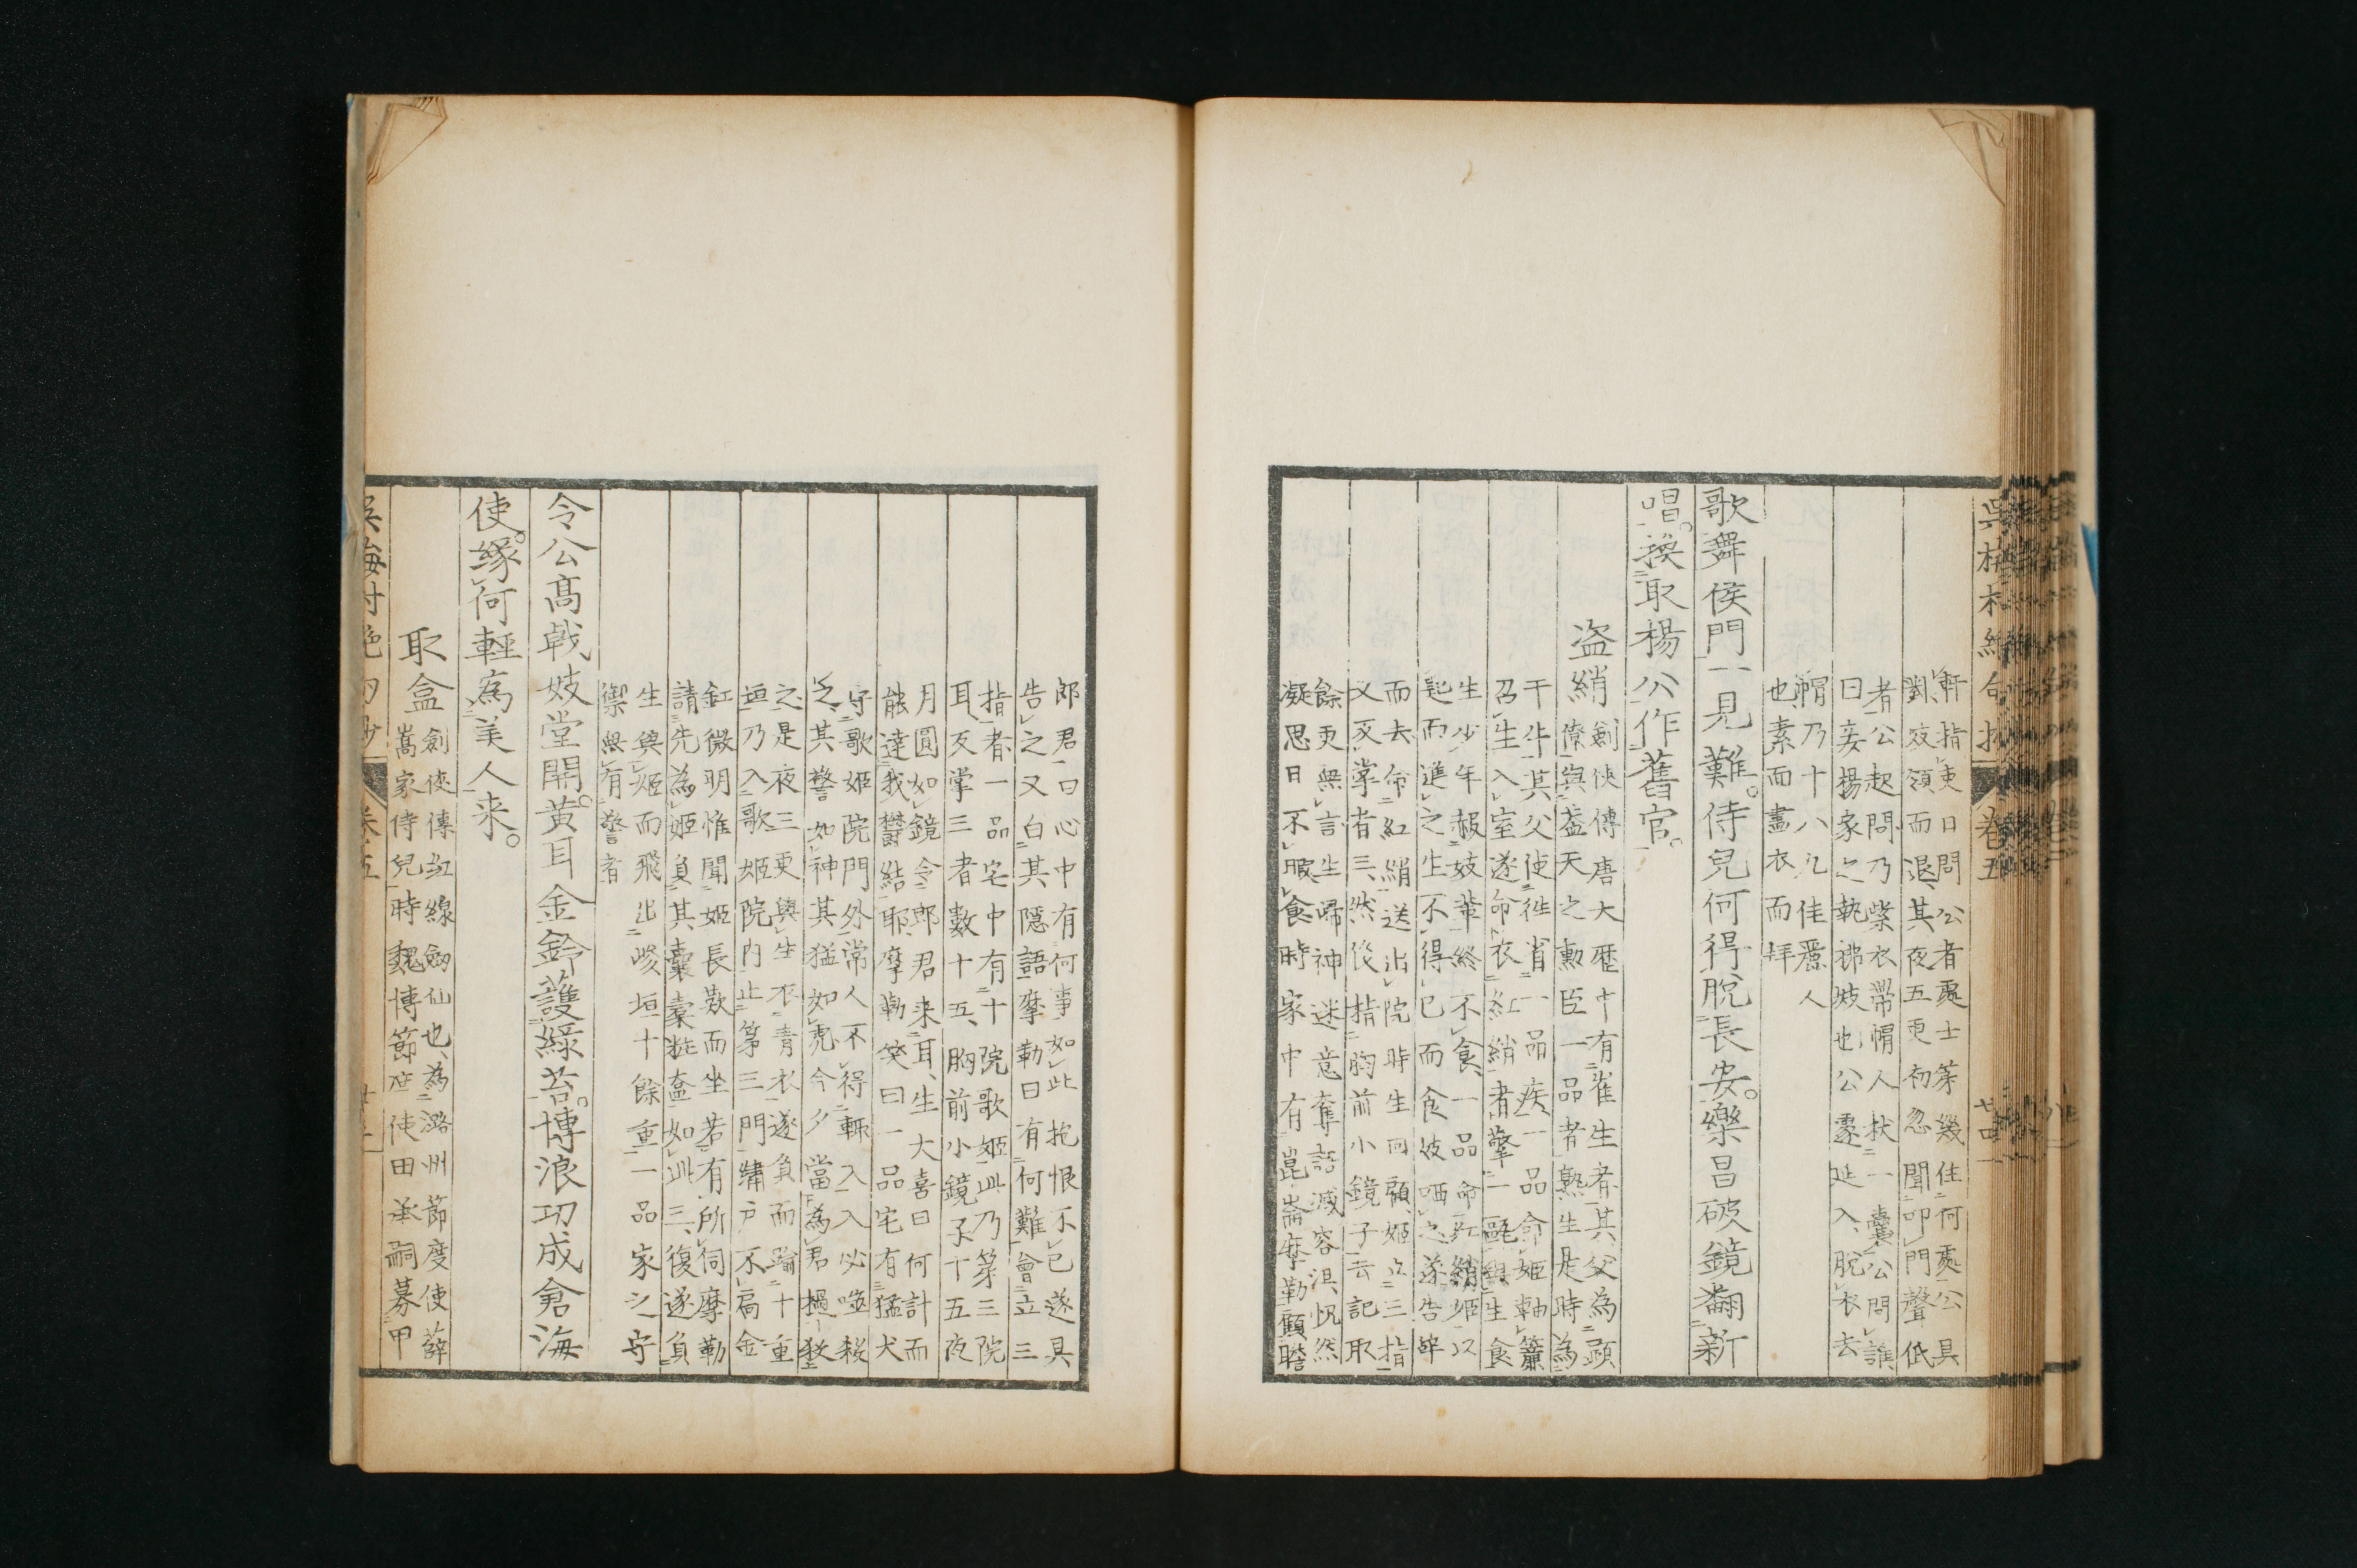 吳梅村絕句抄 卷五 廿四
軒指吏日問公者處士第幾住何處公具
對妓頷而退其夜五更初忽聞叩門聲低
者公起問乃紫衣帶帽人杖一囊公問誰
曰妾楊家之執拂妓也公遽延入脫衣去
帽乃十八九佳麗人
也素面畫衣而拜
歌舞侯門一見難。侍兒何得脫長安。樂昌破鏡翻新
唱。換取楊公作舊官。
盜綃
劍俠傳唐大歷中有崔生者其父為顕
僚與盖天之勳臣一品者熟生是時為
千牛其父使往省一品疾一品命姬軸簾
召生入室遂命衣紅綃者擎一甌與生食
生少年赧妓輩終不食一品命紅綃姬以
匙而進之生不得已而食妓哂之遂告辞
而去命紅綃送出院時生回顧姬立三指
又反掌者三然後指胸前小鏡子云記取
餘更無言生歸神迷意奪語減容沮怳然
凝思日不暇食時家中有崑崙摩勒顧瞻
郎君曰心中有何事如此抱恨不已遂具
告之又白其隱語摩勒曰有何難會立三
指者一品宅中有十院歌姬此乃第三院
耳反掌三者數十五胸前小鏡子十五夜
月圓如鏡令郎君来耳生大喜曰何計而
能達我鬱結耶摩勒笑曰一品宅有猛犬
守歌姬院門外常人不得輙入入必噬殺
之其警如神其猛如虎今夕當為君撾殺
之是夜三更與生衣青衣遂負而踰十重
垣乃入歌姬院内止第三門繡戸不扃金
釭微明惟聞姬長歎而坐若有所伺摩勒
請先為姬負其囊橐粧奩如此三復遂負
生與姬而飛出峻垣十餘重一品家之守
禦無有警者
令公高戟妓堂開。黄耳金鈴護綠苔。博浪功成倉海
使。緣何輕為美人来。
取盒
劍俠傳紅線劍仙也為潞州節度使薛
嵩家侍兒時魏博節度使田承嗣募甲